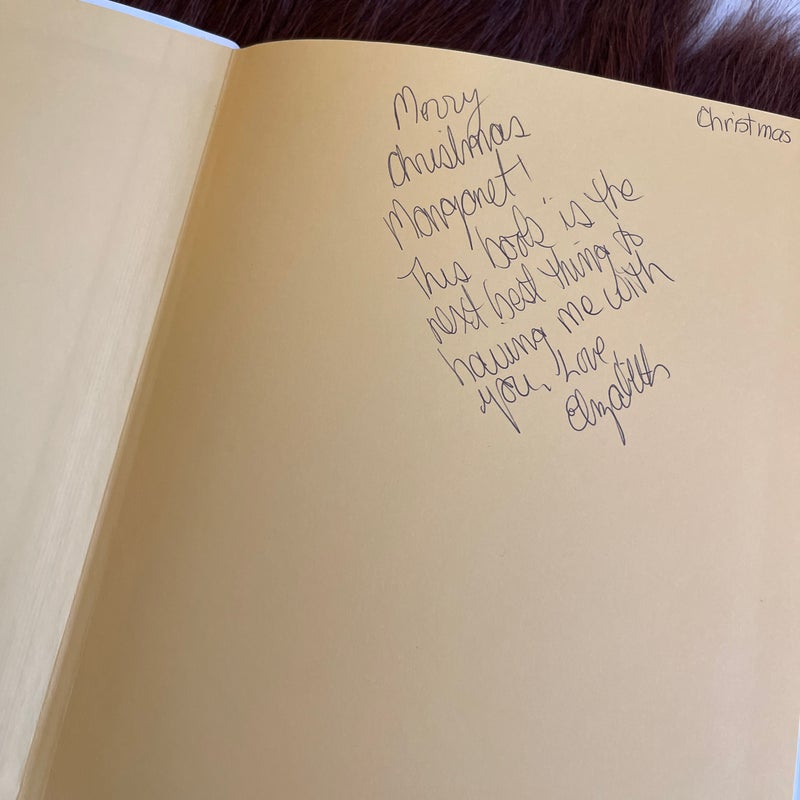 Merry
Christmas
Margaret!
This "book" is the
next best thing to
having me with
you. Love
Elizabeth
Christmas